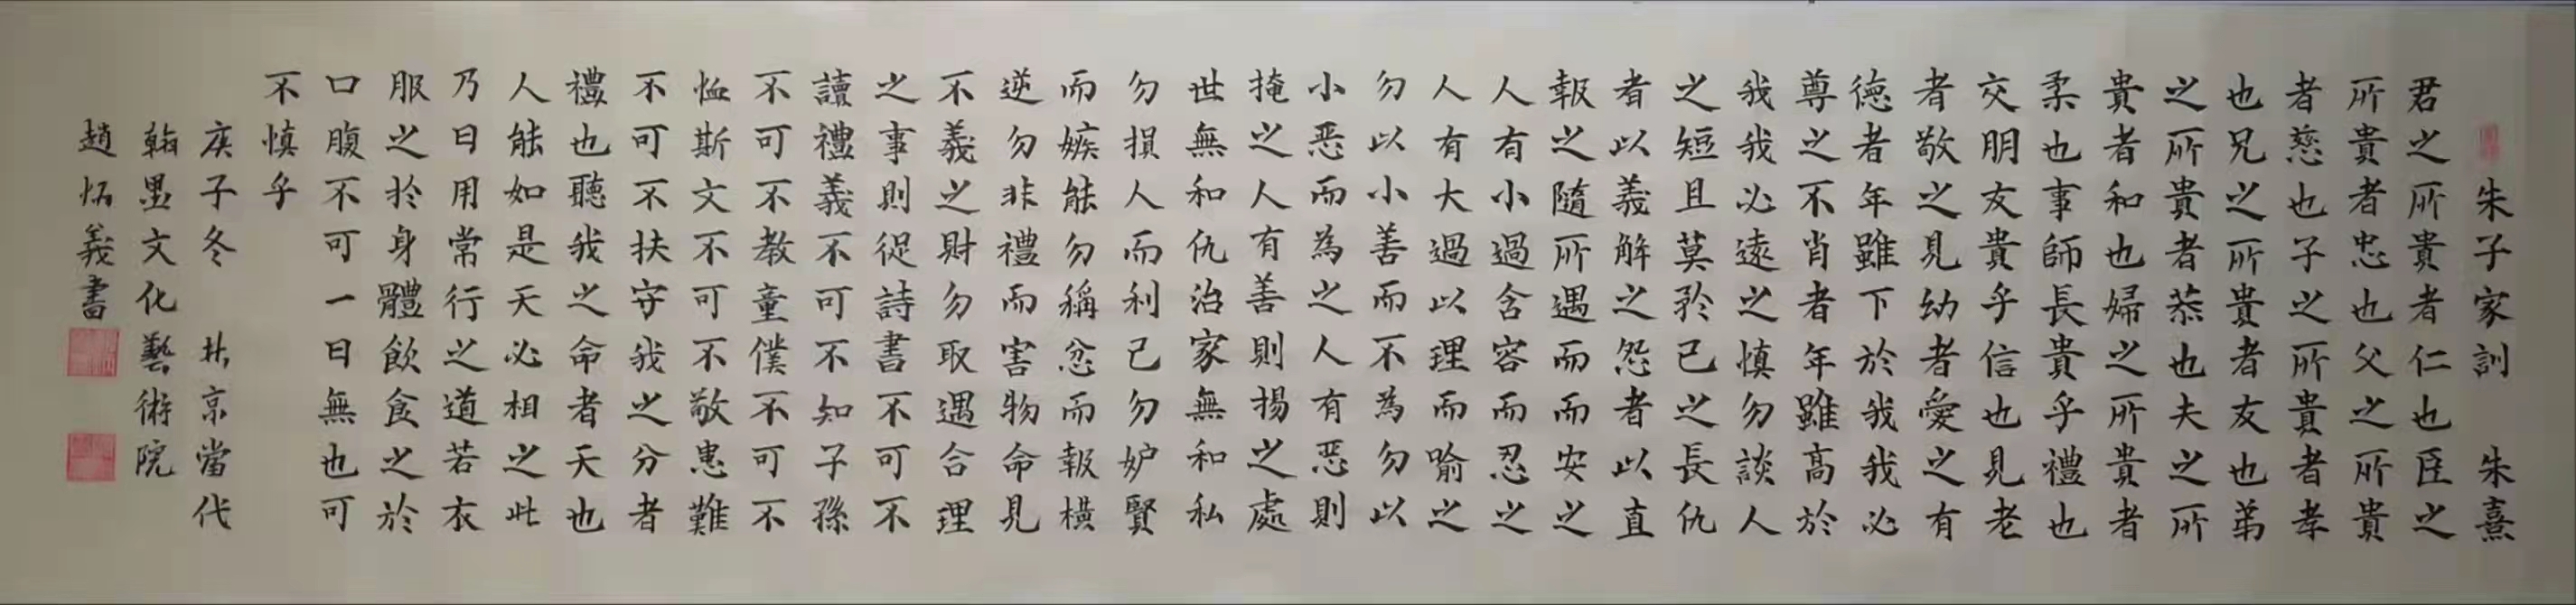 朱子家訓 朱熹
君之所貴者仁也臣之
所貴者忠也父之所貴
者慈也子之所貴者孝
也兄之所貴者友也弟
之所貴者恭也夫之所
貴者和也婦之所貴者
柔也事師長貴乎禮也
交朋友貴乎信也見老
者敬之見幼者愛之有
德者年雖下於我我必
尊之不肖者年雖高於
我我必遠之慎勿談人
之短且莫矜己之長仇
者以義解之怨者以直
報之隨所遇而安之
人有小過含容而忍之
人有大過以理而喻之
勿以小善而不為勿以
小惡而為之人有惡則
掩之人有善則揚之處
世無和仇治家無和私
勿損人而利己勿妒賢
而嫉能勿稱忿而報橫
逆勿非禮而害物命見
不義之財勿取遇合理
之事則從詩書不可不
讀禮義不可不知子孫
不可不教童僕不可不
恤斯文不可不敬患難
不可不扶守我之分者
禮也聽我之命者天也
人能如是天必相之此
乃日用常行之道若衣
服之於身體飲食之於
口腹不可一日無也可
不慎乎
庚子冬 北京當代
翰墨文化藝術院
趙炳義書